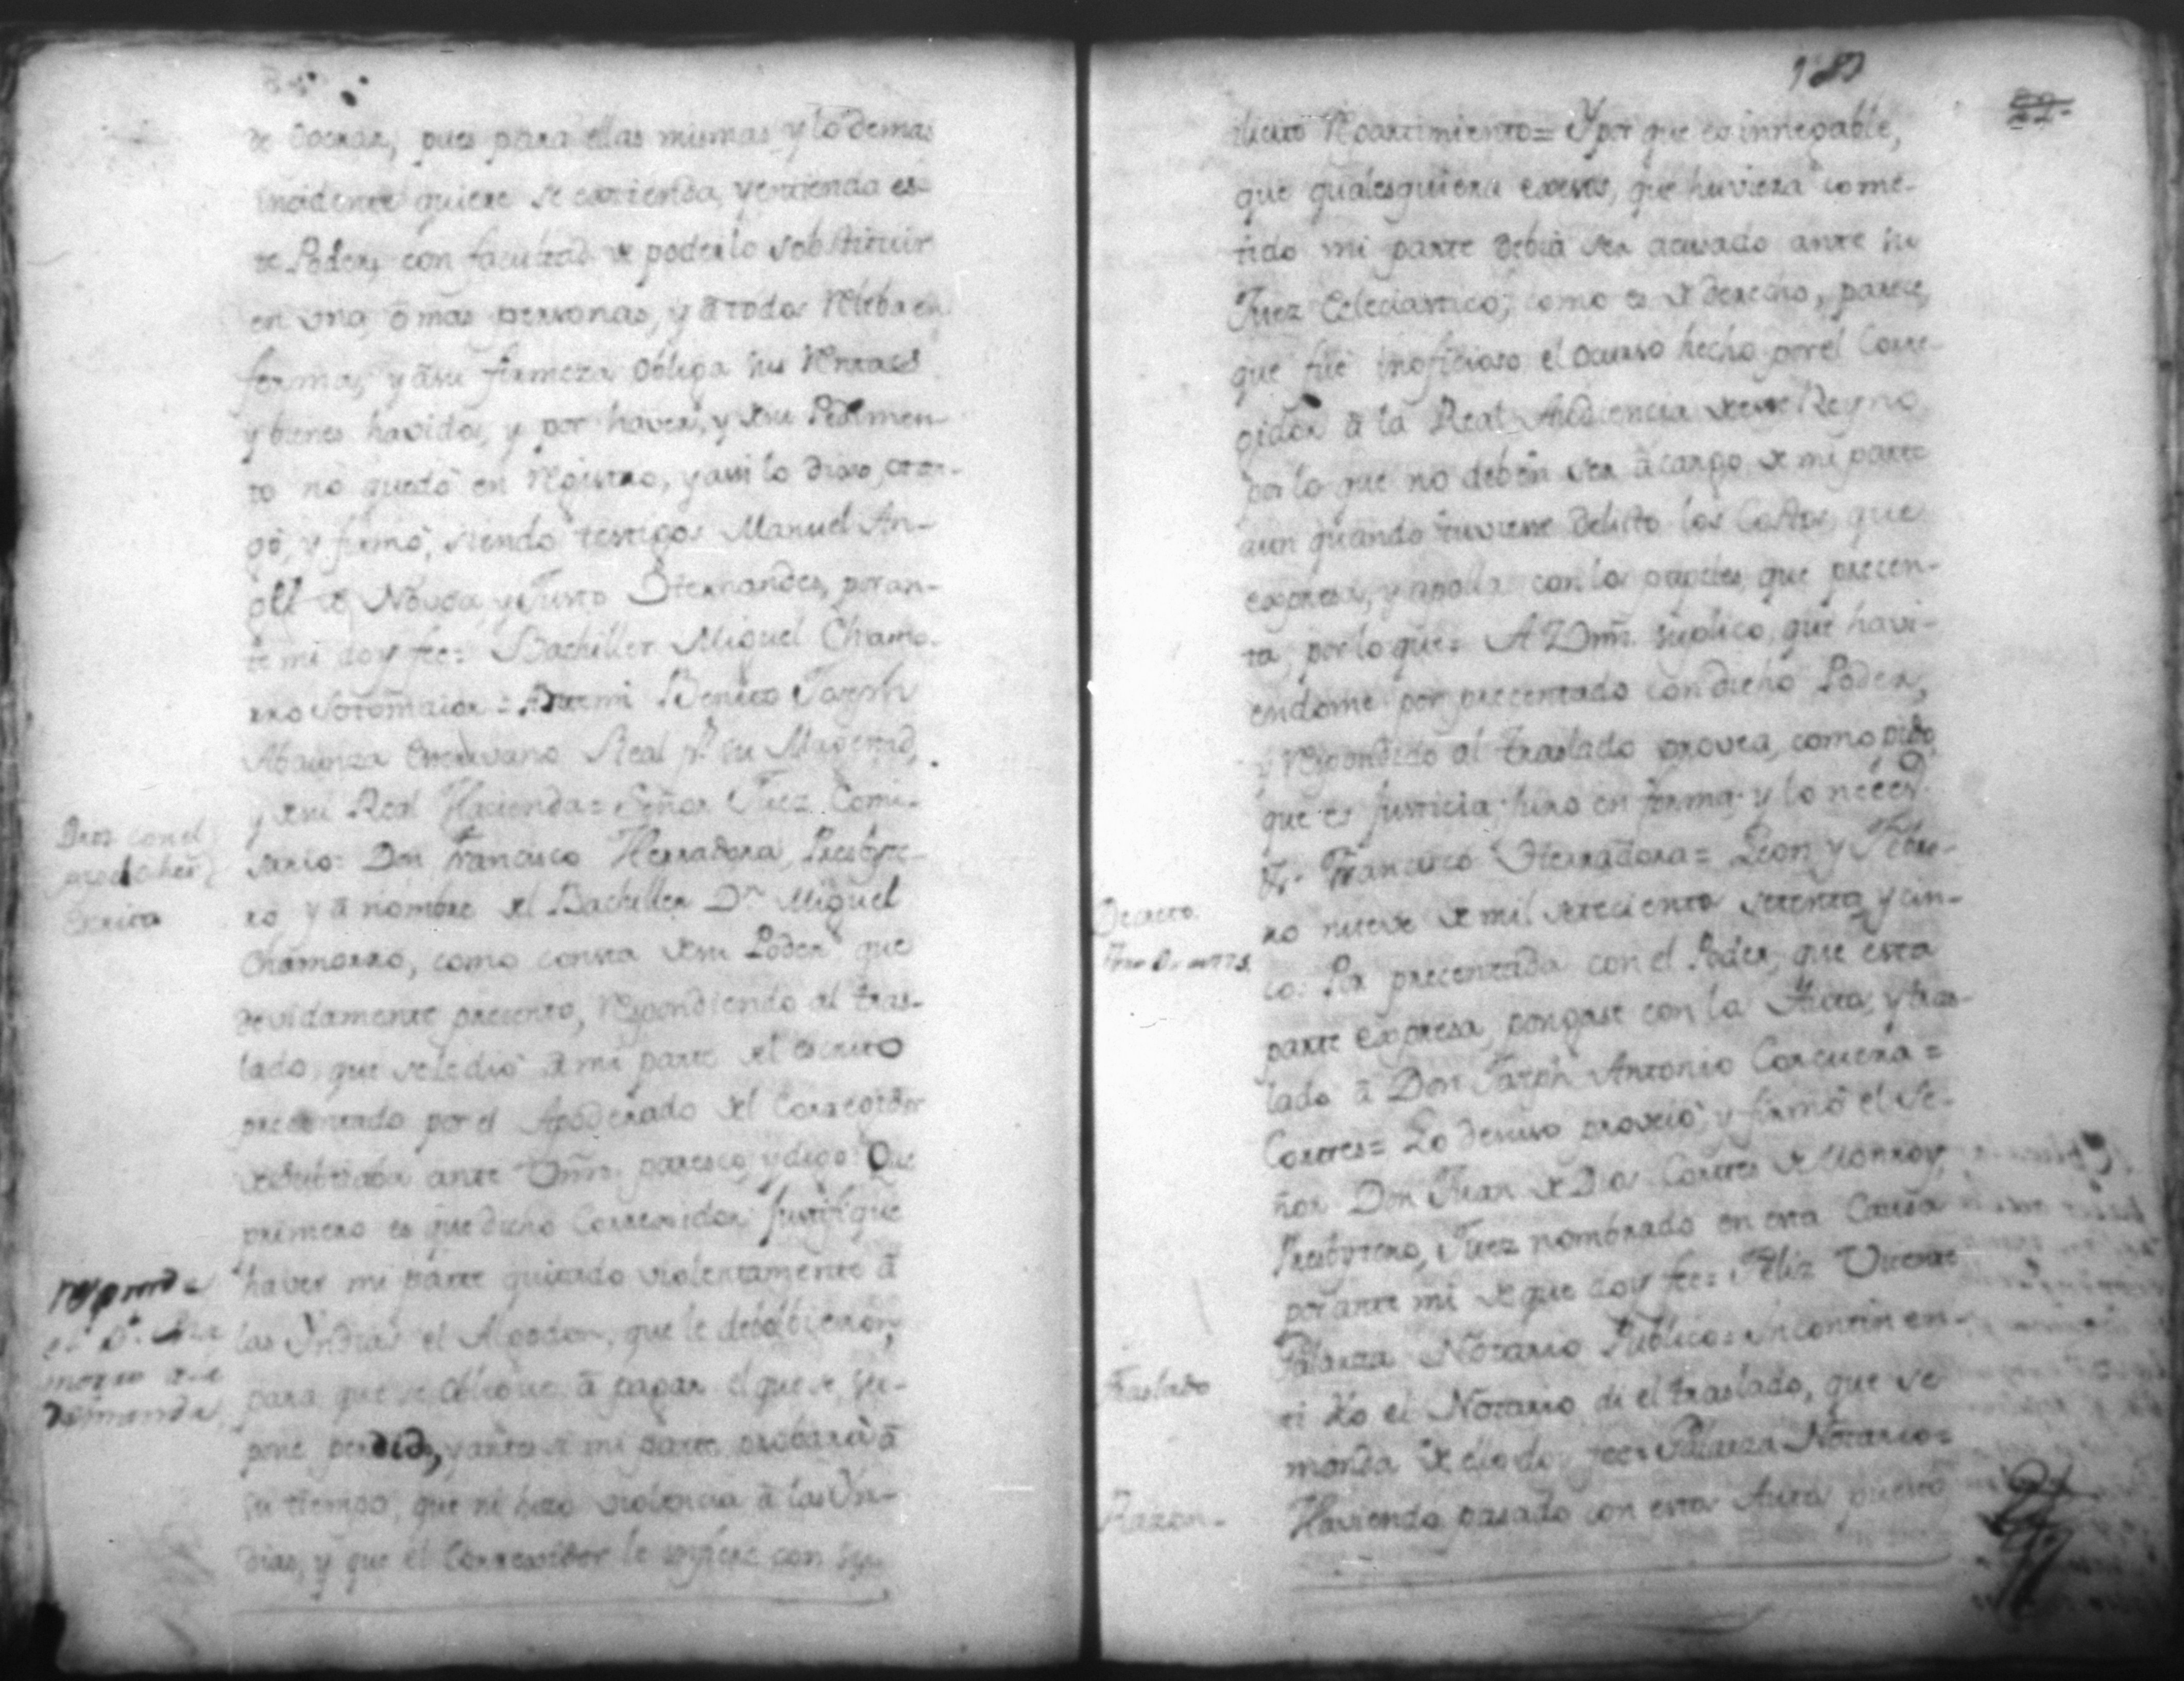 de Operar, pues para ellas mismas y lo demas
incidente quiere se extienda, y entienda es-
te Poder, con facultad de poderlo sobstituir
en una, ó mas personas, y á todos releba en
forma, y á su firmeza obliga sus Rentas
y bienes havidos, y por haver, y de su Pedimen-
to no quedó en Registro, y assi lo dixo, otor-
gó, y firmó, siendo testigos Manuel An-
gel de Novoa, y Justo Hernandes, por an-
te mi doy fee= Bachiller Miguel Chamo-
rro Sotomaior= Ante mi Benito Joseph
Abaunza Escrivano Real pr. su Magestad,
y de su Real Hacienda= Señor Juez Comi-
sario: Don Francisco Herradora, Presbyte-
ro, y á nombre del Bachiller Dn. Miguel
Chamorro, como consta de su Poder que
devidamente presento, respondiendo al tras-
lado, que se le dio á mi parte del escrito
presentado por el Apoderado del Corregidor
de Subtiaba ante Vm. paresco, y digo: Que
primero es que dicho Corregidor justifique
haver mi parte quitado violentamente á
las Yndias el Algodon, que le debolbieron,
para que se oblique á pagar el que se su-
pone perdido, y antes á mi parte probará á
su tiempo, que ni hizo violencia á las Yn-
dias, y que el Corregidor le
con el
Escrito
Responde
el Br. Cha
morro á la
demanda
182
22.
ilicito Repartimiento= Y por que es innegable,
que qualesquiera excesos, que huviera come-
tido mi parte debia ser acusado ante su
Juez Eclesiastico, como es de derecho, parece,
que fue inoficioso el ocurso hecho por el Corre-
gidor á la Real Audiencia de este Reyno
por lo que no deben ser á cargo de mi parte
aun quando tuviese delicto los Costos, que
expresa, y apolla con los papeles, que presen-
ta, por lo que= A Vm. suplico, que havi-
endome por precentado con dicho Poder,
y respondido al traslado provea, como pido,
que es justicia juro en forma, y lo neces.
Br. Francisco Herradora= Leon y Febre-
ro nueve de mil setecientos setenta y cin-
co: Por precentada con el Poder, que esta
parte expresa, pongase con los Autos, y tras-
lado á Don Joseph Antonio Corcuera=
Cortes= Lo de suso proveió, y firmó el Se-
ñor Don Juan de Dios Cortes de Monroy
Presbytero, Juez nombrado en esta Causa
por ante mi de que doy fee= Feliz Vicente
Palanza Notario Publico= Yncontinen-
ti Yo el Notario di el traslado, que se
manda de ello doy fee= Palanza Notario=
Haviendo pasado con estos Autos puesto
Decreto.
Traslado
Razon.